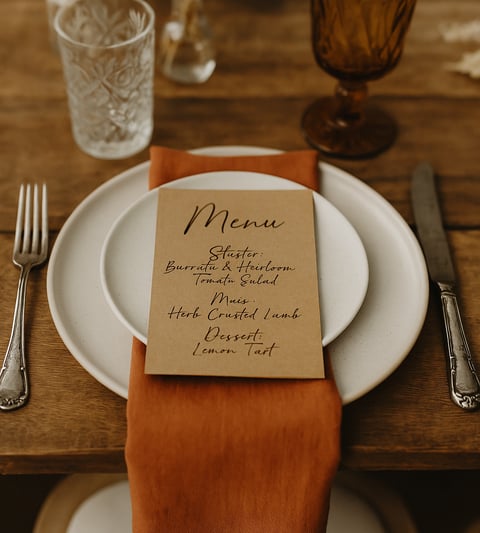 Menu
Stuster:
Burrutu & Heirloom
Tomatu Sulad
Muis.
Herb Crusted Lumb
Dessert:
Lemon Tart